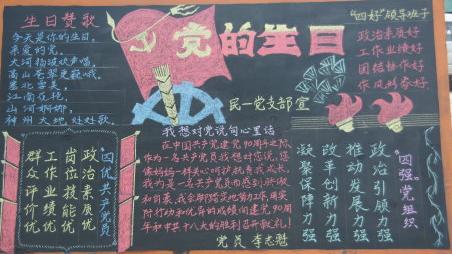 生日赞歌
今天是你的生日,
亲爱的党。
大河扬波欢声唱,
高山苍翠更巍峨。
塞北雪美,
江南花艳,
山河娜娜,
神州大地处处歌。
党的生日
民一党支部宣
"四好"领导班子
政治素质好
工作业绩好
团结协作好
作风形象好
"四优"共产党员
政治素质优
岗位技能优
工作业绩优
群众评价优
我想对党说句心里话
在中国共产党建党90周年之际
作为一名共产党员我想对您说:您
像妈妈一样关心呵护抚育我成长,
我为是一名共产党员而感到骄傲
和自豪,我会脚踏实地努力工作,用实
际行动和优异的成绩向建党90周
年和中共十八大的胜利召开献礼!
党员 李志魁
"四强"党组织
政治引领力强
推动发展力强
改革创新力强
凝聚保障力强